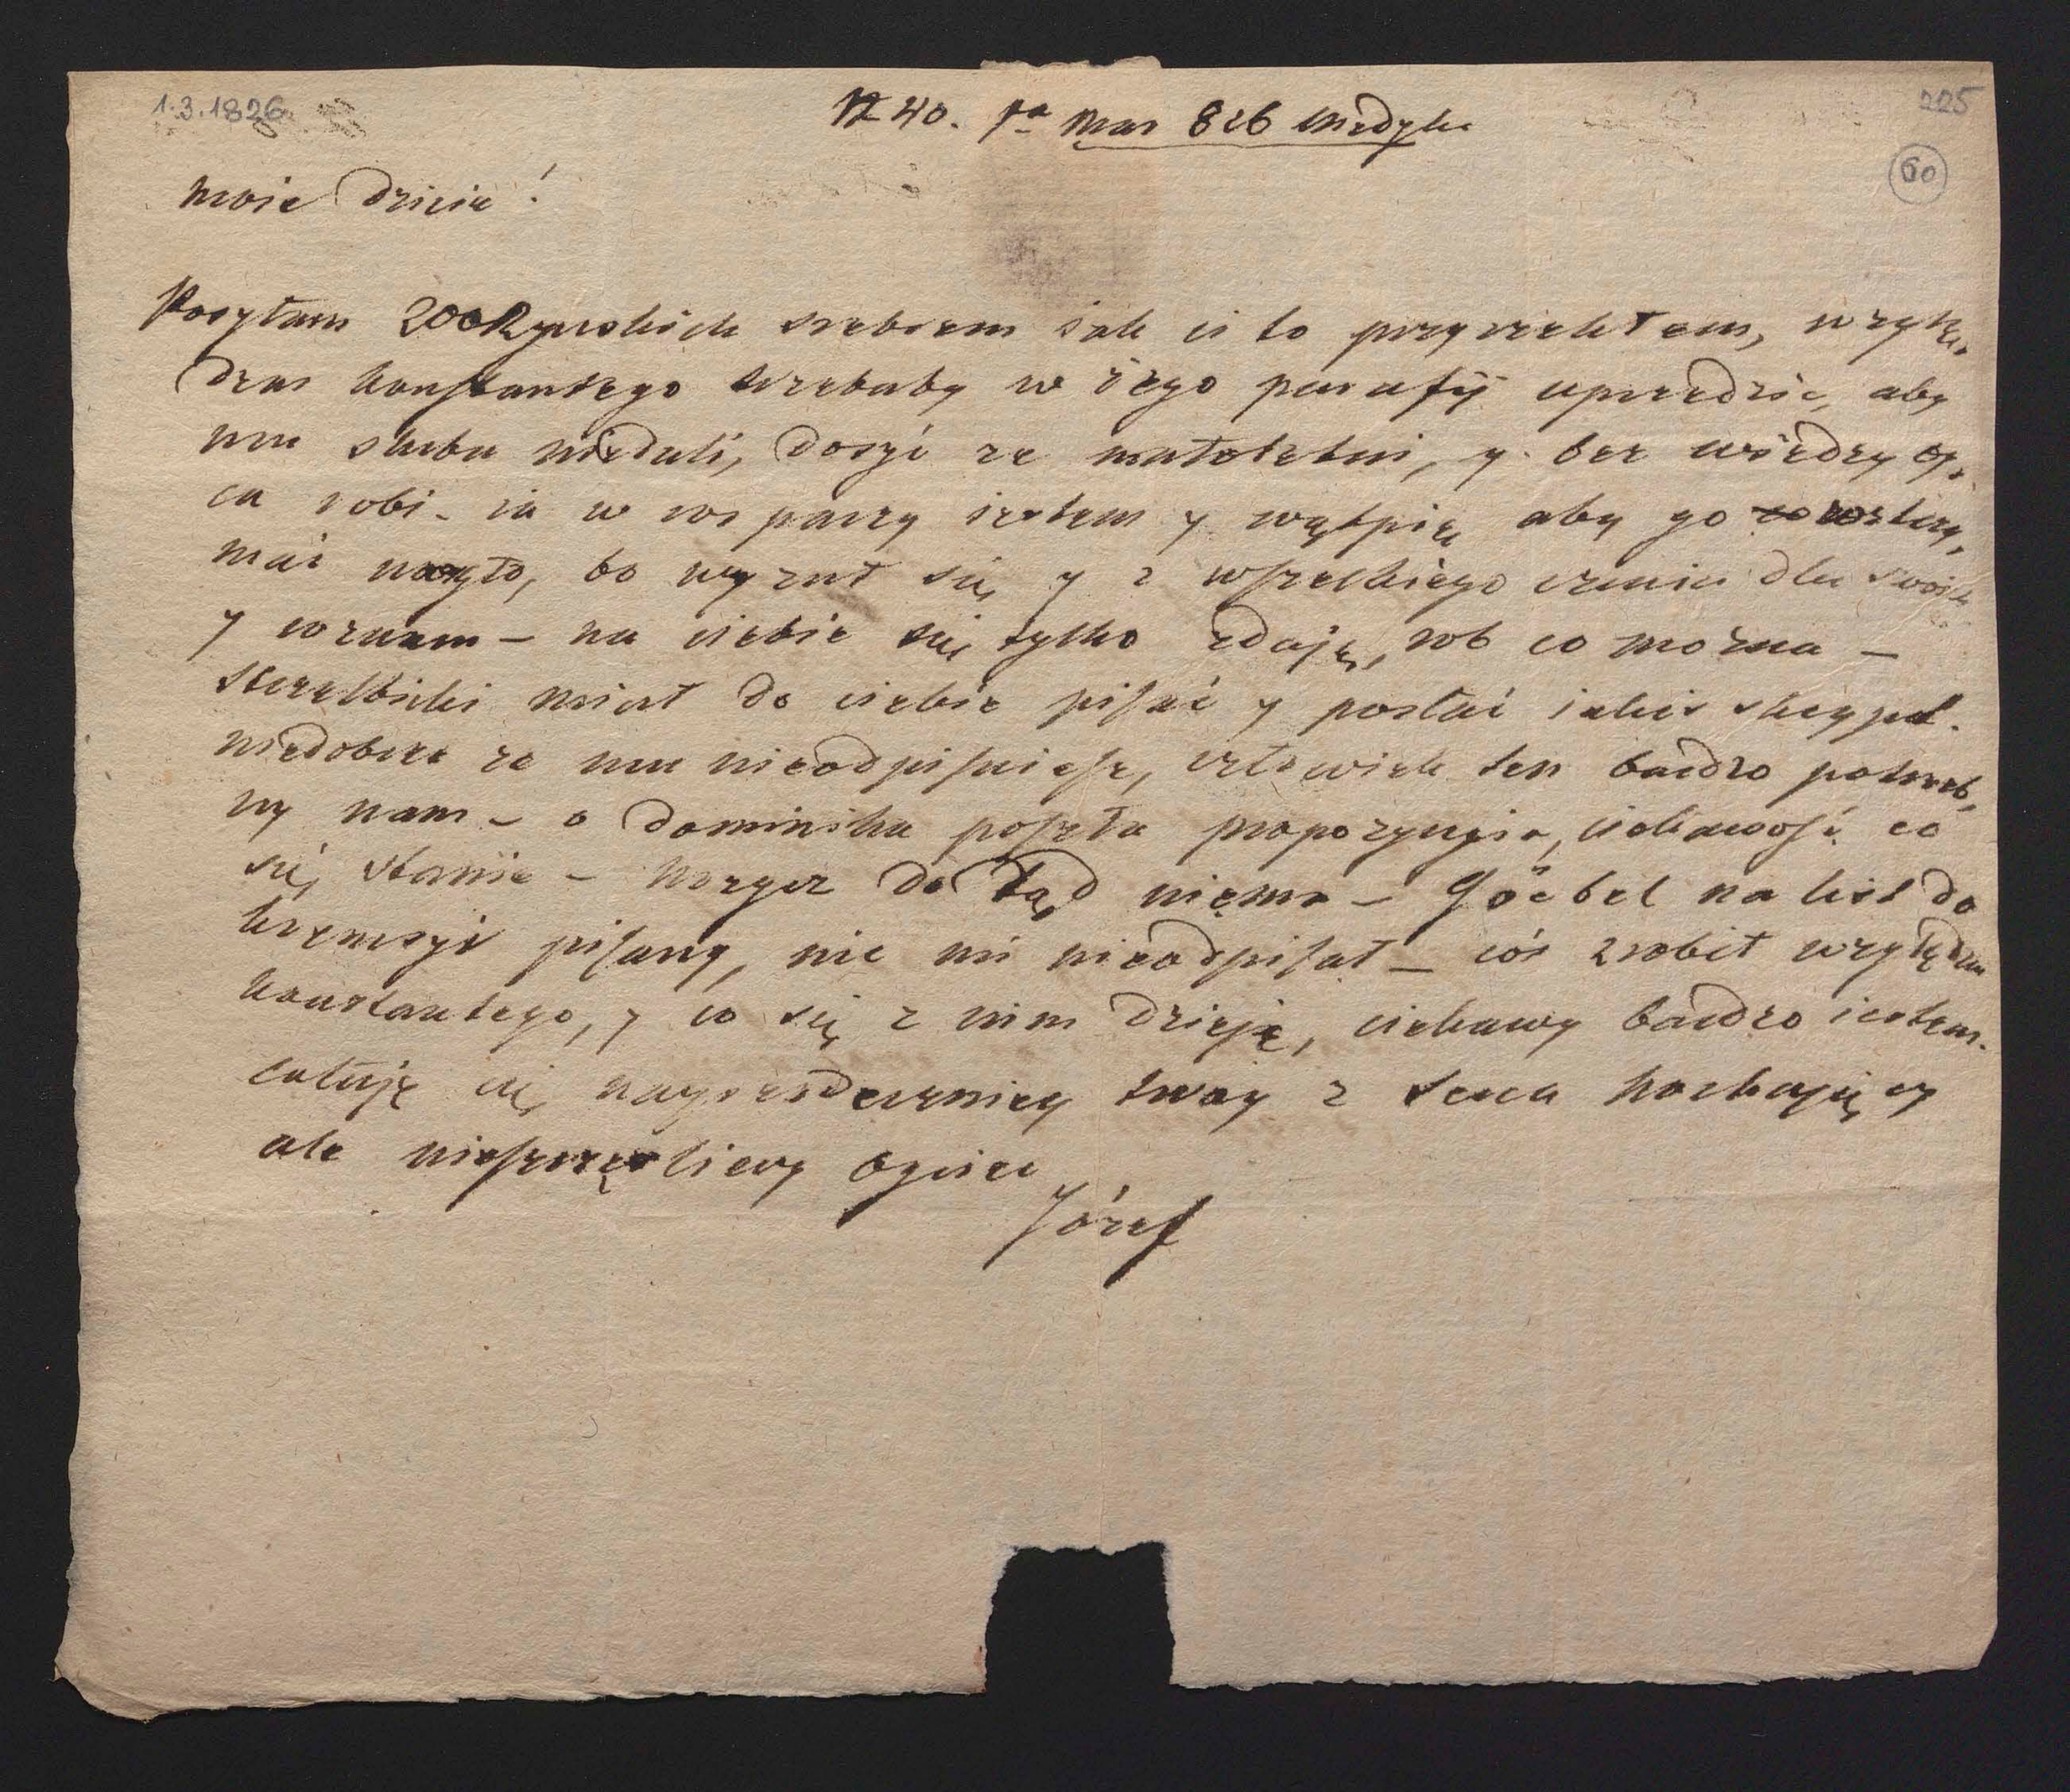 1.3.1826
N 40. 1a Mar 826 Medyka
225
60
Moie dziecie!
Posyłam 200 Rynskich srebrem iak ci to przyrzekłem, wzglę-
dem Konstantego trzebaby w iego parafij uprzedzic, aby
mu slubu niedali, dosyć ze małoletni, y bez wiedzy oy-
ca robi - ia w rospaczy iestem y wątpię aby go wstrzy-
mać można było, bo wyzuł się y z wszelkiego czucia dla swoich
y wrazem - na ciebie się tylko zdaję, rob co można -
Strzelbicki miał do ciebie pisać y posłać iakis skrypt.
niedobrze ze mu nieodpisuiesz, człowiek ten bardzo potrzeb-
ny nam - o Dominika poszła propozycyia, ciekawość co
się stanie - Horyez do tąd niema - Göebel na list do
Krzemsyi pisany, nic mi nieodpisał - coś zrobił względem
Konstantego, y co się z nim dzieje, ciekawy bardzo iestem.
całuję cię nayserdeczniey twoy z serca kochaiący
ale nieszczęsliewy Oyciec
Józef